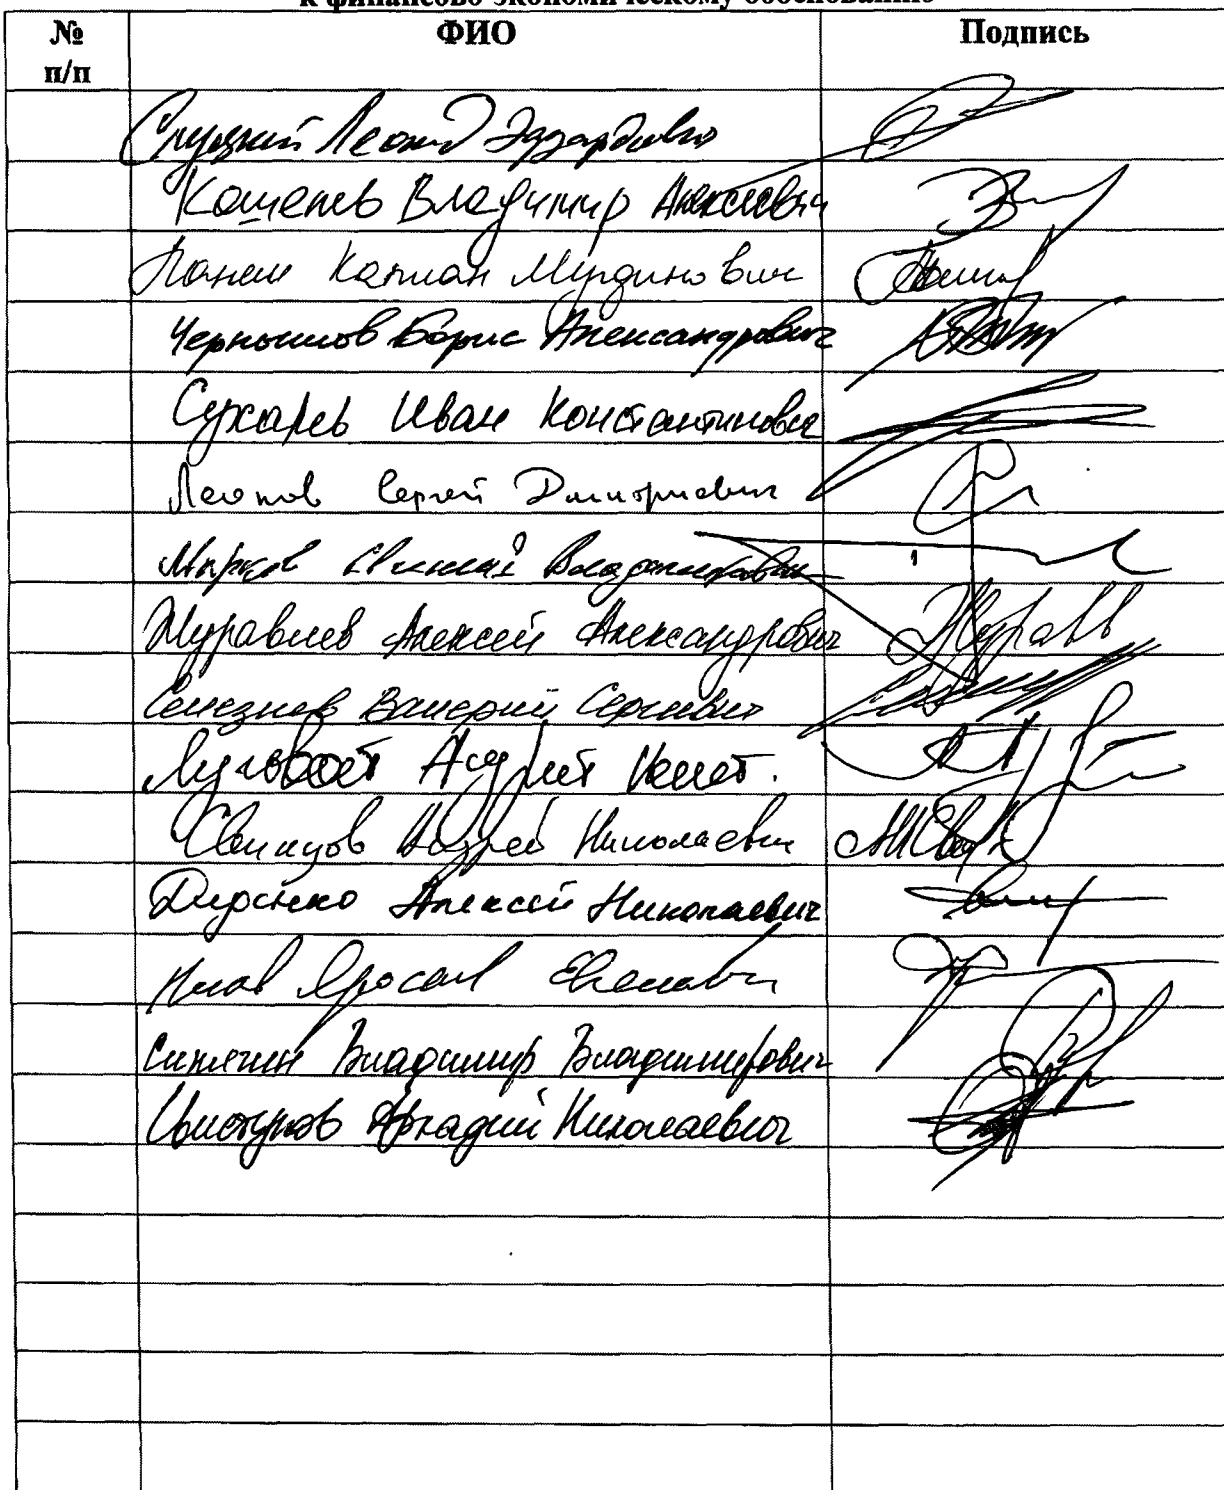 к финансово-экономическому обоснованию
№ п/п ФИО Подпись
Слуцкий Леонид Эдуардович
Кошелев Владимир Алексеевич
Панеш Каплан Мугдинович
Чернышов Борис Александрович
Сухарев Иван Константинович
Леонов Сергей Дмитриевич
Марков Владимирович
Журавлев Алексей Александрович Журавл
Селезнев Валерий Сергеевич
Луговой Андрей Конст.
Свинцов Андрей Николаевич
Диденко Алексей Николаевич
Нилов Ярослав Евгеньевич
Сипягин Владимир Владимирович
Свистунов Аркадий Николаевич